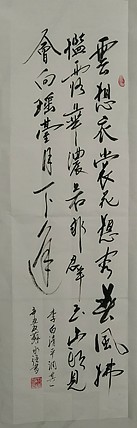 雲想衣裳花想容春風拂
檻露華濃若非群玉山頭見
會向瑶臺月下逢
李白清平調其一